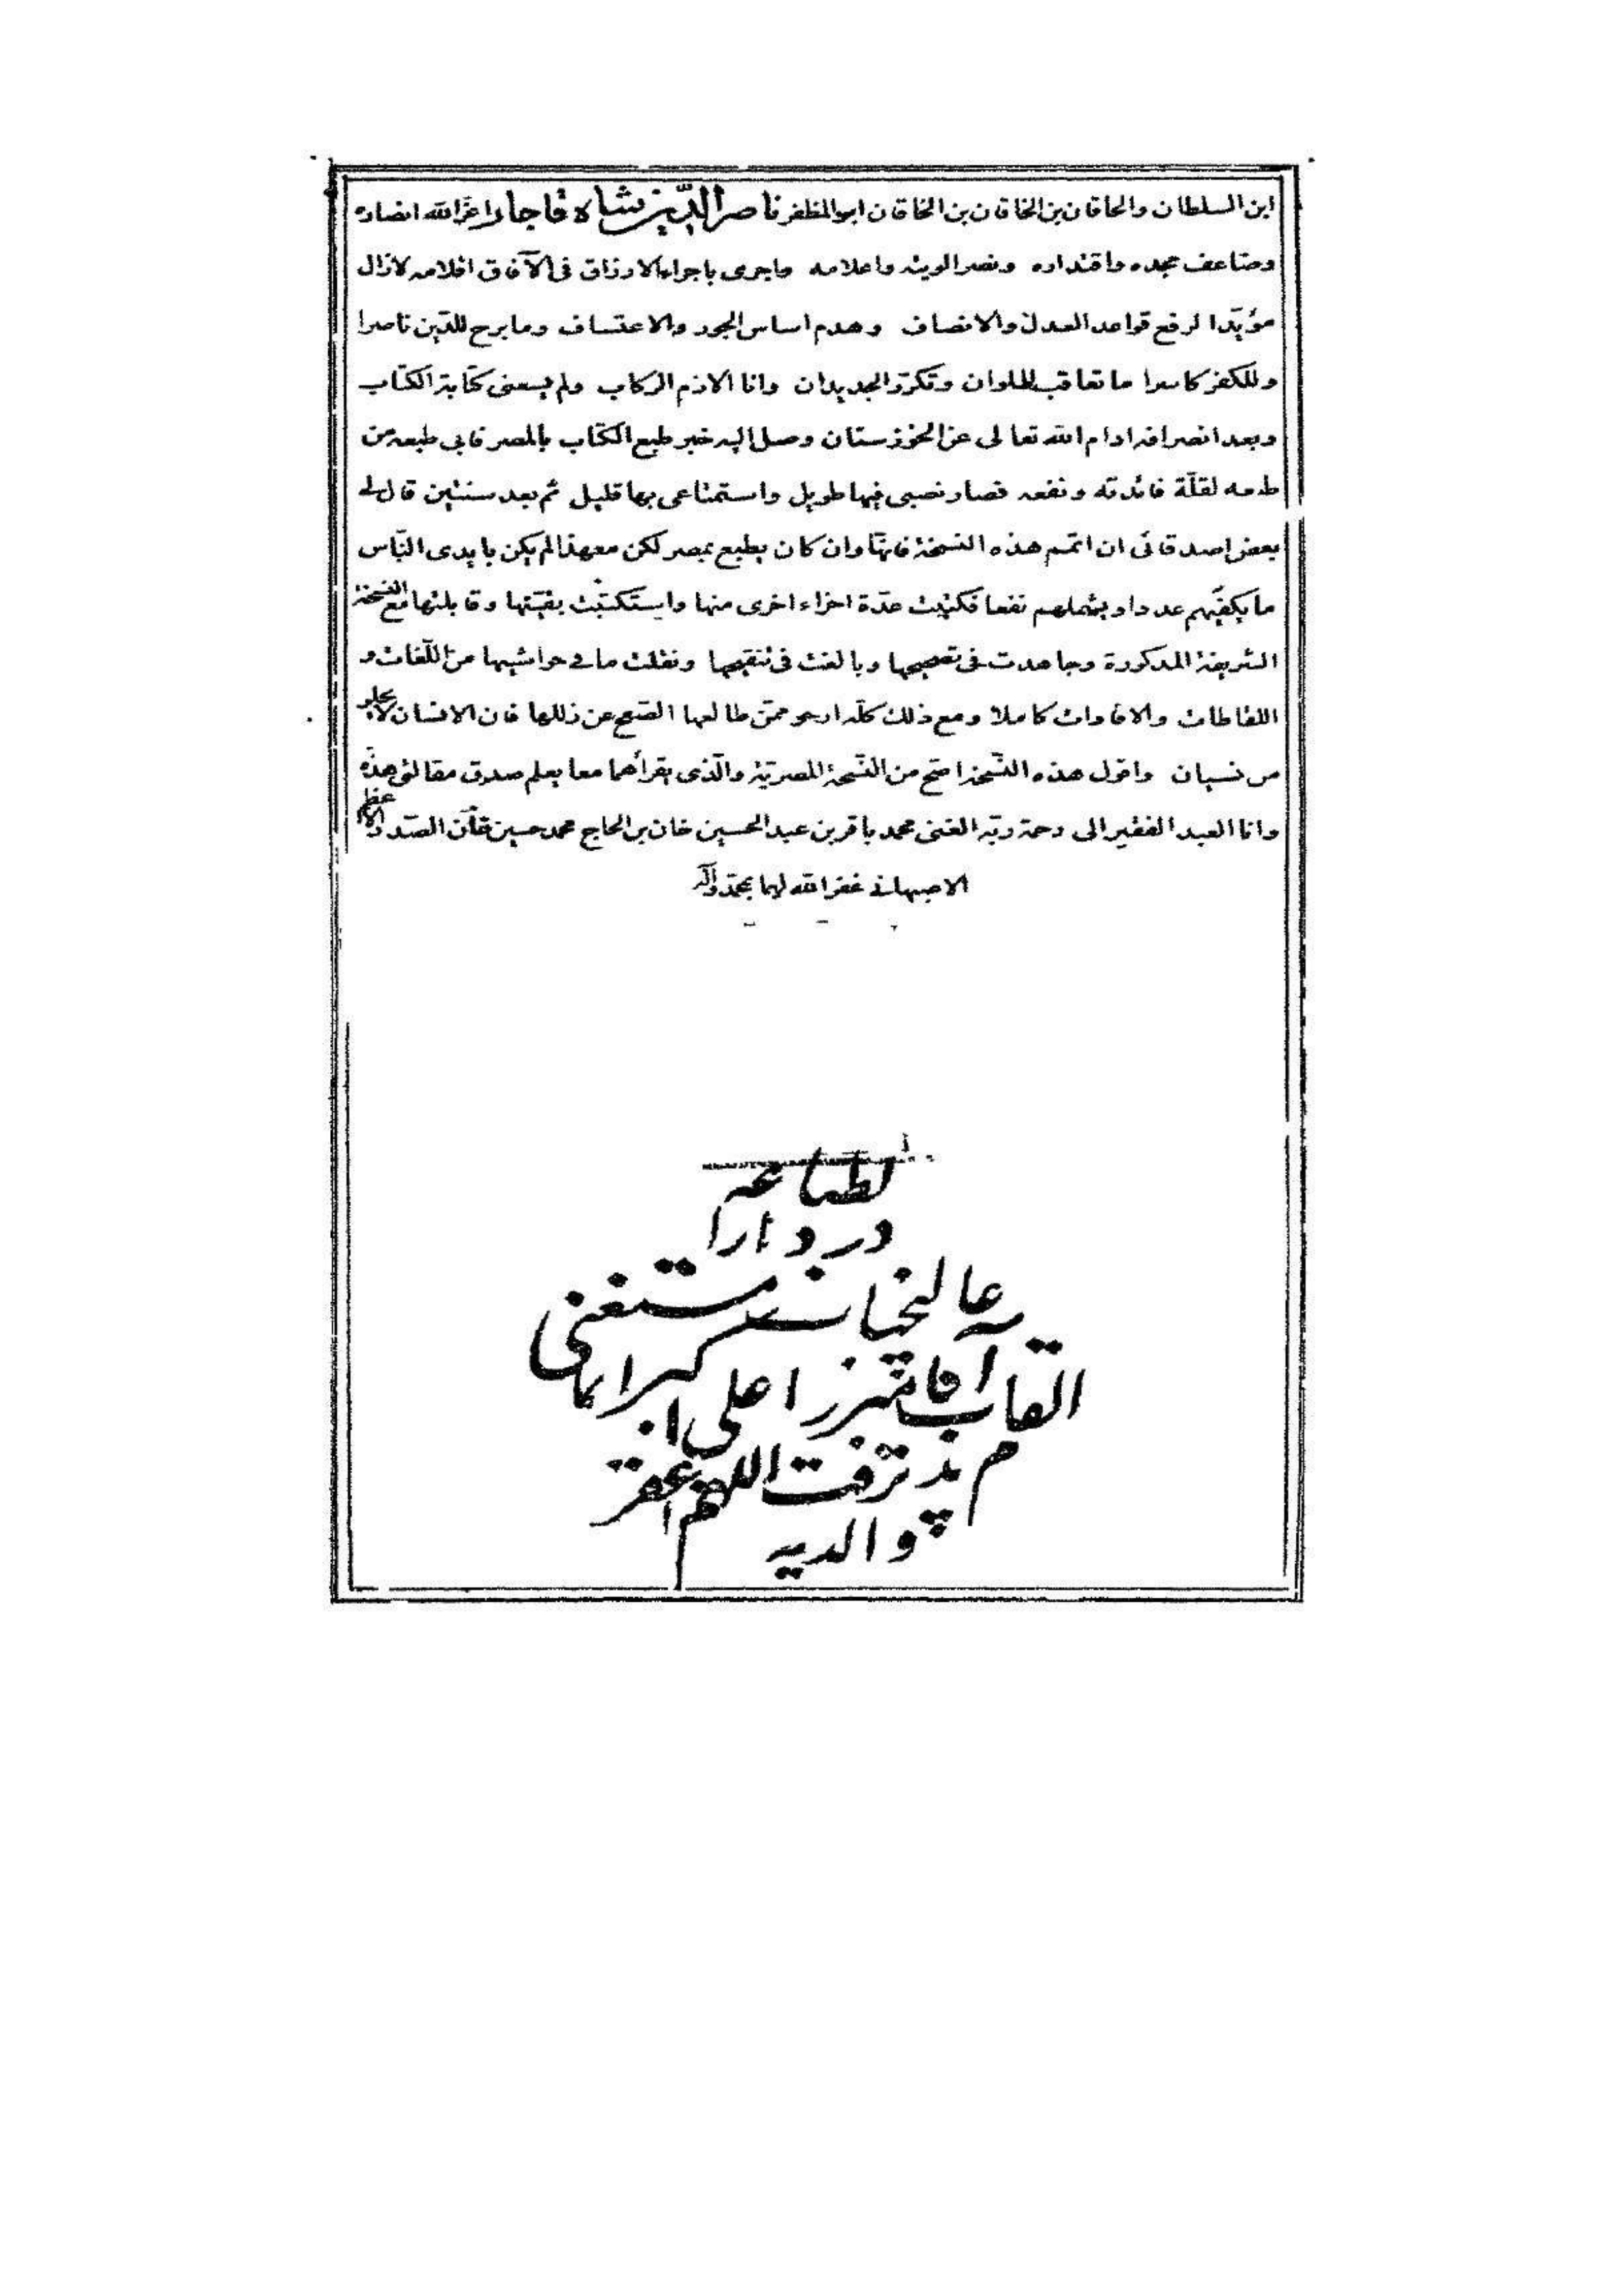 ابن السلطان والخاقان بن الخاقان بن الخاقان ابوالمظفر ناصر الدّين شاه قاجار اعزّ الله انصاره
وضاعف مجده واقتداره ونصر الويته واعلامه واجرى باجراء الارزاق فى الآفاق اقلامه لازال
مؤيّدا لرفع قواعد العدل والانصاف وهدم اساس الجور والاعتساف ومابرح للدّين ناصرا
وللكفر كاسرا ما تعاقب الملوان وتكرّر الجديدان وانا الازم الركاب ولم يسعنى كتابة الكتاب
وبعد انصرافه ادام الله تعالى عن الخوزستان وصل اليه خبر طبع الكتاب بالمصر فابى طبعه من
طمعه لقلّة فائدته ونفعه فصار نصبى فيها طويل واستمتاعى بها قليل ثم بعد سنتين قال لى
بعض اصدقائى ان اتمم هذه النسخة فانّها وان كان يطبع بمصر لكن معهذا لم يكن بايدى النّاس
ما يكفيهم عددا ويشملهم نفعا فكتبت عدّة اجزاء اخرى منها واستكتبت بقيّتها وقابلتها مع النسخة
الشريفة المذكورة وجاهدت فى تصحيحها وبالغت فى تنقيحها ونقلت ما فى حواشيها من اللّغات و
اللقاطات والافادات كاملا ومع ذلك كلّه ارجو ممّن طالعها الصّفح عن زللها فان الانسان لايخلو
من نسيان واقول هذه النّسخة اصّح من النّسخة المصريّة والّذى يقرأهما معا يعلم صدق مقالتى هذه
وانا العبد الفقير الى رحمة ربّه الغنى محمد باقر بن عبد الحسين خان بن الحاج محمد حسين خان الصّدر الاعظم
الاصبهانى غفر الله لهما بمحمّد وآله
لطباعه
در دارا
عاليجناب مستغنى
القاب آقا ميرزا على اكبر اتمام
پذيرفت اللهم اغفر
والديه